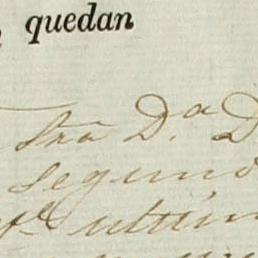 quedan
Sra D.a D
segundo
ultim